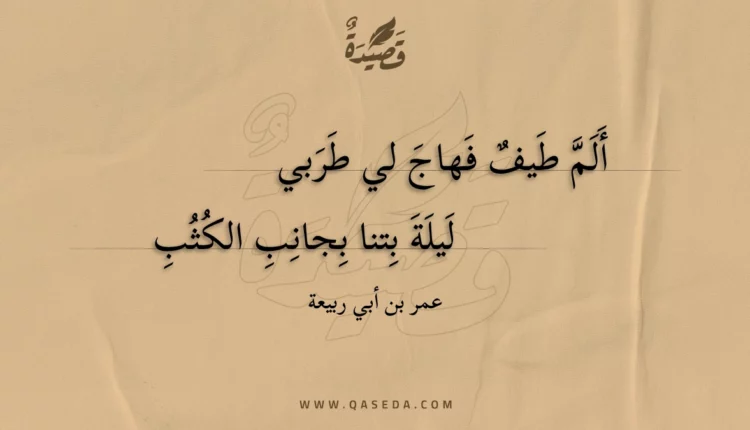 قَصِيدَةٌ
أَلَمَّ طَيفٌ فَهاجَ لي طَرَبي
لَيلَةَ بِتنا بِجانِبِ الكُثُبِ
عمر بن أبي ربيعة
WWW.QASEDA.COM